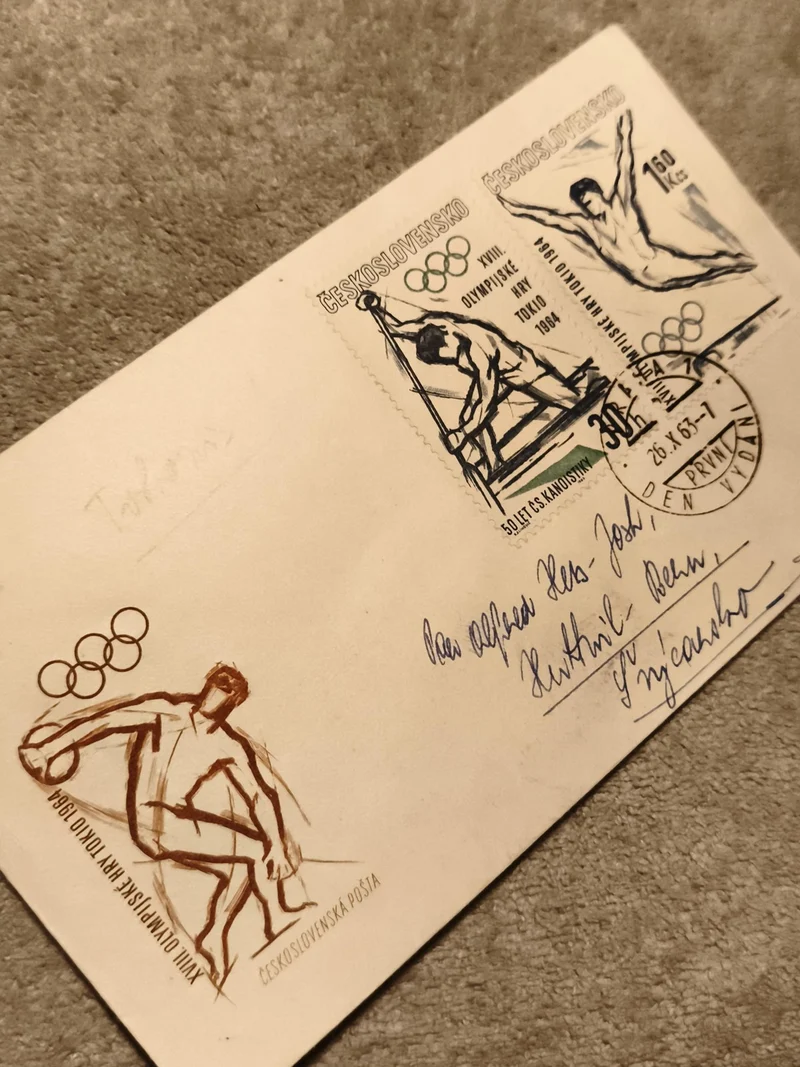 ČESKOSLOVENSKO
XVIII.
OLYMPIJSKÉ
HRY
TOKIO
1964
50 LET ČS. KANOISTIKY
30
h
ČESKOSLOVENSKO
1 60
Kčs
XVIII. OLYMPIJSKÉ HRY TOKIO 1964
PRAHA 1
26.X.63-7
PRVNÍ
DEN VYDÁNÍ
Alfred
Huttwil - Bern,
Švýcarsko
XVIII. OLYMPIJSKÉ HRY TOKIO 1964
ČESKOSLOVENSKÁ POŠTA